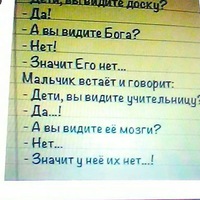 - Дети, вы видите доску?
- Да!
- А вы видите Бога?
- Нет!
- Значит Его нет...
Мальчик встаёт и говорит:
- Дети, вы видите учительницу?
- Да...!
- А вы видите её мозги?
- Нет...
- Значит у неё их нет...!